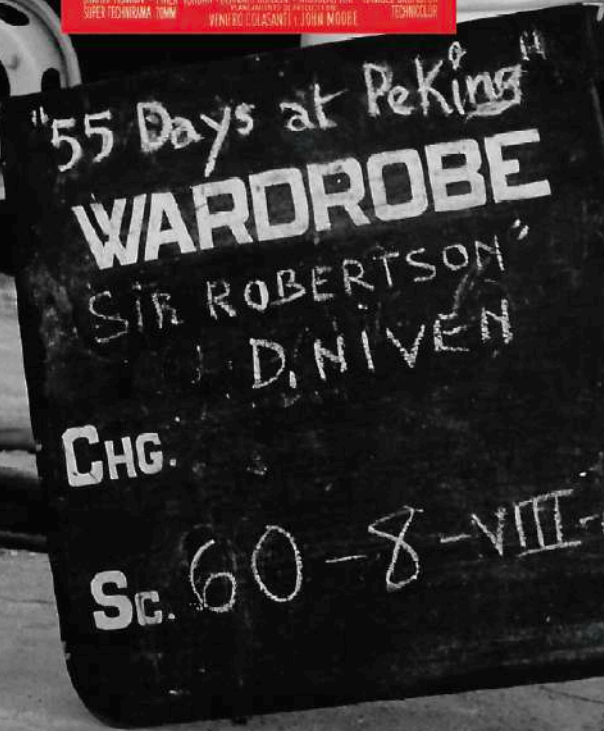 SUPER TECHNIRAMA 70MM
VENIERO COLASANTI - JOHN MOORE
TECHNICOLOR
"55 Days at Peking"
WARDROBE
SiR ROBERTSON"
D. NiVEN
CHG.
Sc. 60-8-VIII-